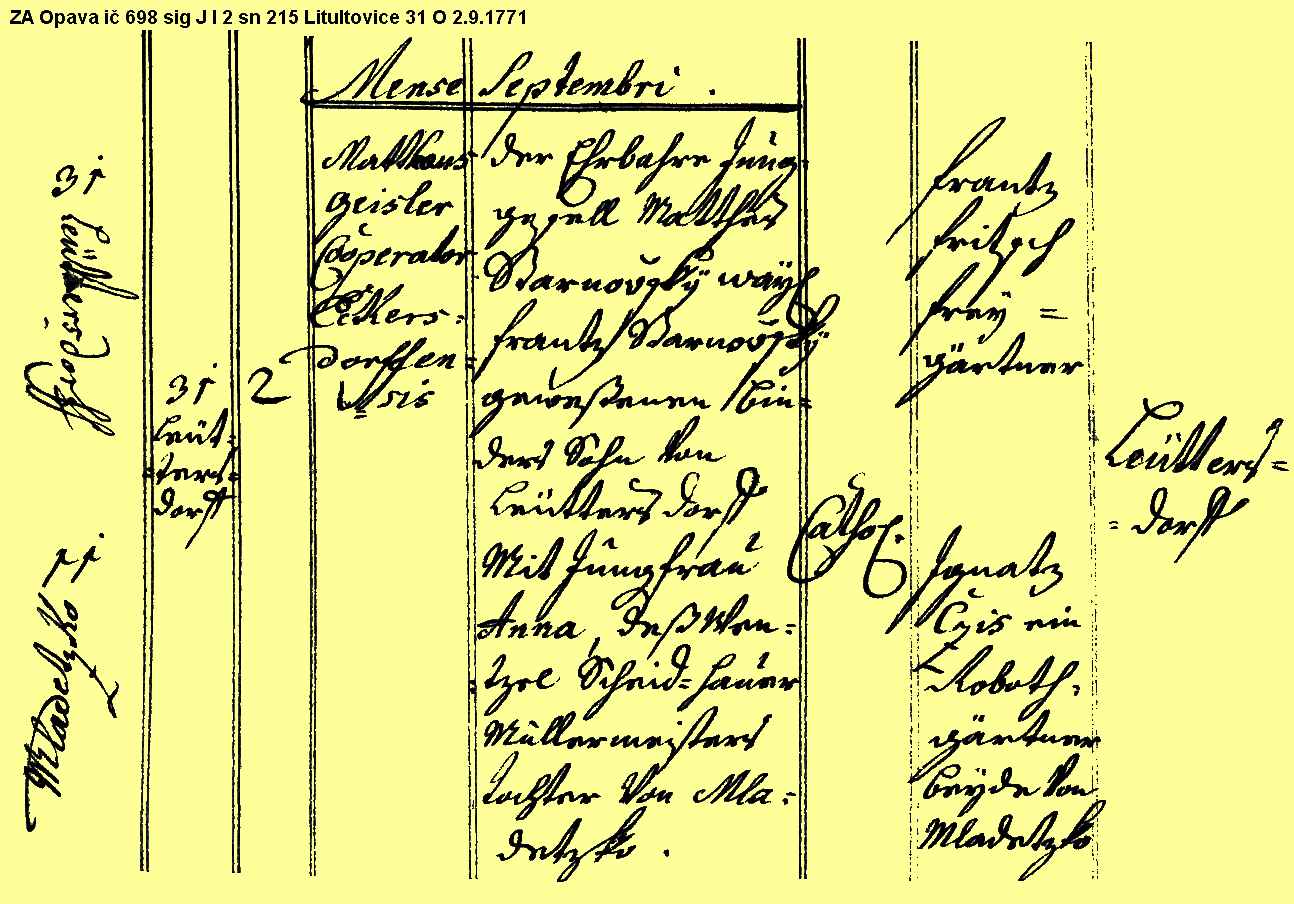 ZA Opava ič 698 sig J I 2 sn 215 Litultovice 31 O 2.9.1771
Mense Septembri .
31
Leüttersdorff
11
Mladetzko
31
Leüt=
ters=
dorff
2
Matthæus
Geisler
Cooperator
Eckers=
dorffen=
sis
der Ehrbahre Jung=
gesell Matthes
Starnovsky weÿl
Frantz Starnovsky
geweßenen Bin=
ders Sohn Von
Leütters dorff
Mit Jungfrau
Anna, deß Wen=
tzel Scheid=hauer
Müllermeisters
tochter Von Mla=
detzko .
Cathol.
Frantz
Fritsch
freÿ=
gärtner
Ignatz
Czis ein
Roboth=
gärtner
beÿde Von
Mladetzko
Leütters=
=dorff